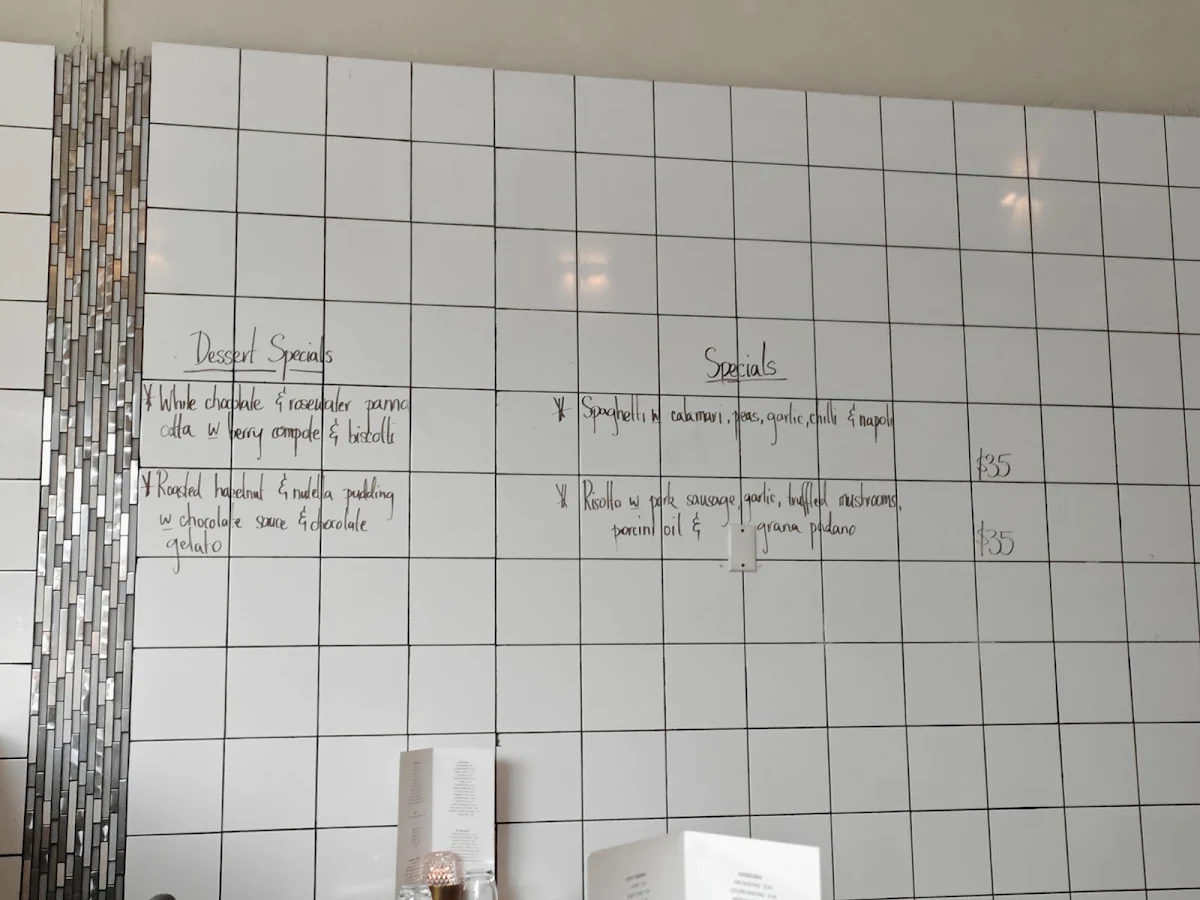 Dessert Specials
White chocolate & rosewater panna
cotta w berry compote & biscotti
Roasted hazelnut & nutella pudding
w chocolate sauce & chocolate
gelato
Specials
Spaghetti w calamari, peas, garlic, chilli & napoli
$35
Risotto w pork sausage, garlic, truffled mushrooms,
porcini oil & grana padano
$35